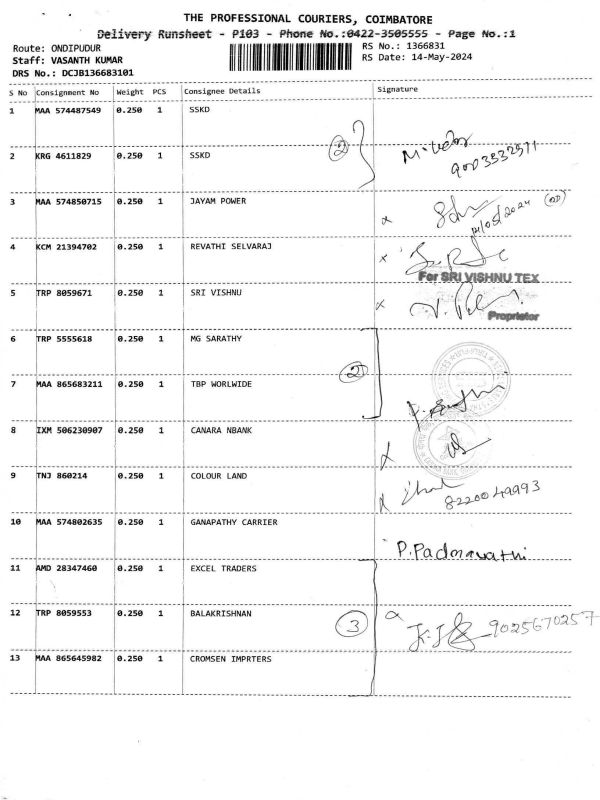 THE PROFESSIONAL COURIERS, COIMBATORE
Delivery Runsheet - P103 - Phone No.:0422-3505555 - Page No.:1
Route: ONDIPUDUR
Staff: VASANTH KUMAR
DRS No.: DCJB136683101
RS No.: 1366831
RS Date: 14-May-2024
S No Consignment No Weight PCS Consignee Details Signature
1 MAA 574487549 0.250 1 SSKD
2 KRG 4611829 0.250 1 SSKD
2
9003532571
3 MAA 574850715 0.250 1 JAYAM POWER
14/05/2024
4 KCM 21394702 0.250 1 REVATHI SELVARAJ
For SRI VISHNU TEX
5 TRP 8059671 0.250 1 SRI VISHNU
Proprietor
6 TRP 5555618 0.250 1 MG SARATHY
2
7 MAA 865683211 0.250 1 TBP WORLWIDE
8 IXM 506230907 0.250 1 CANARA NBANK
9 TNJ 860214 0.250 1 COLOUR LAND
8220049993
10 MAA 574802635 0.250 1 GANAPATHY CARRIER
P.Padmavathi
11 AMD 28347460 0.250 1 EXCEL TRADERS
12 TRP 8059553 0.250 1 BALAKRISHNAN
3
9025670257
13 MAA 865645982 0.250 1 CROMSEN IMPRTERS